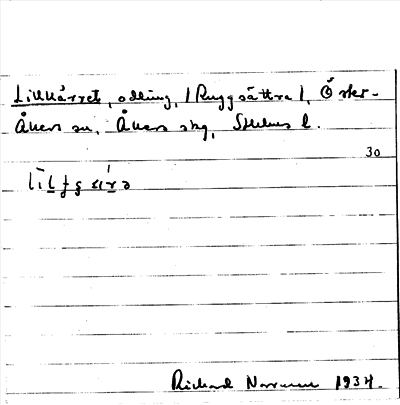 Lillkärret, odling, (Ruggsättra), Öster-
Åkers sn, Åkers skg, Sthlms l.
30
Richard Norrman 1934.